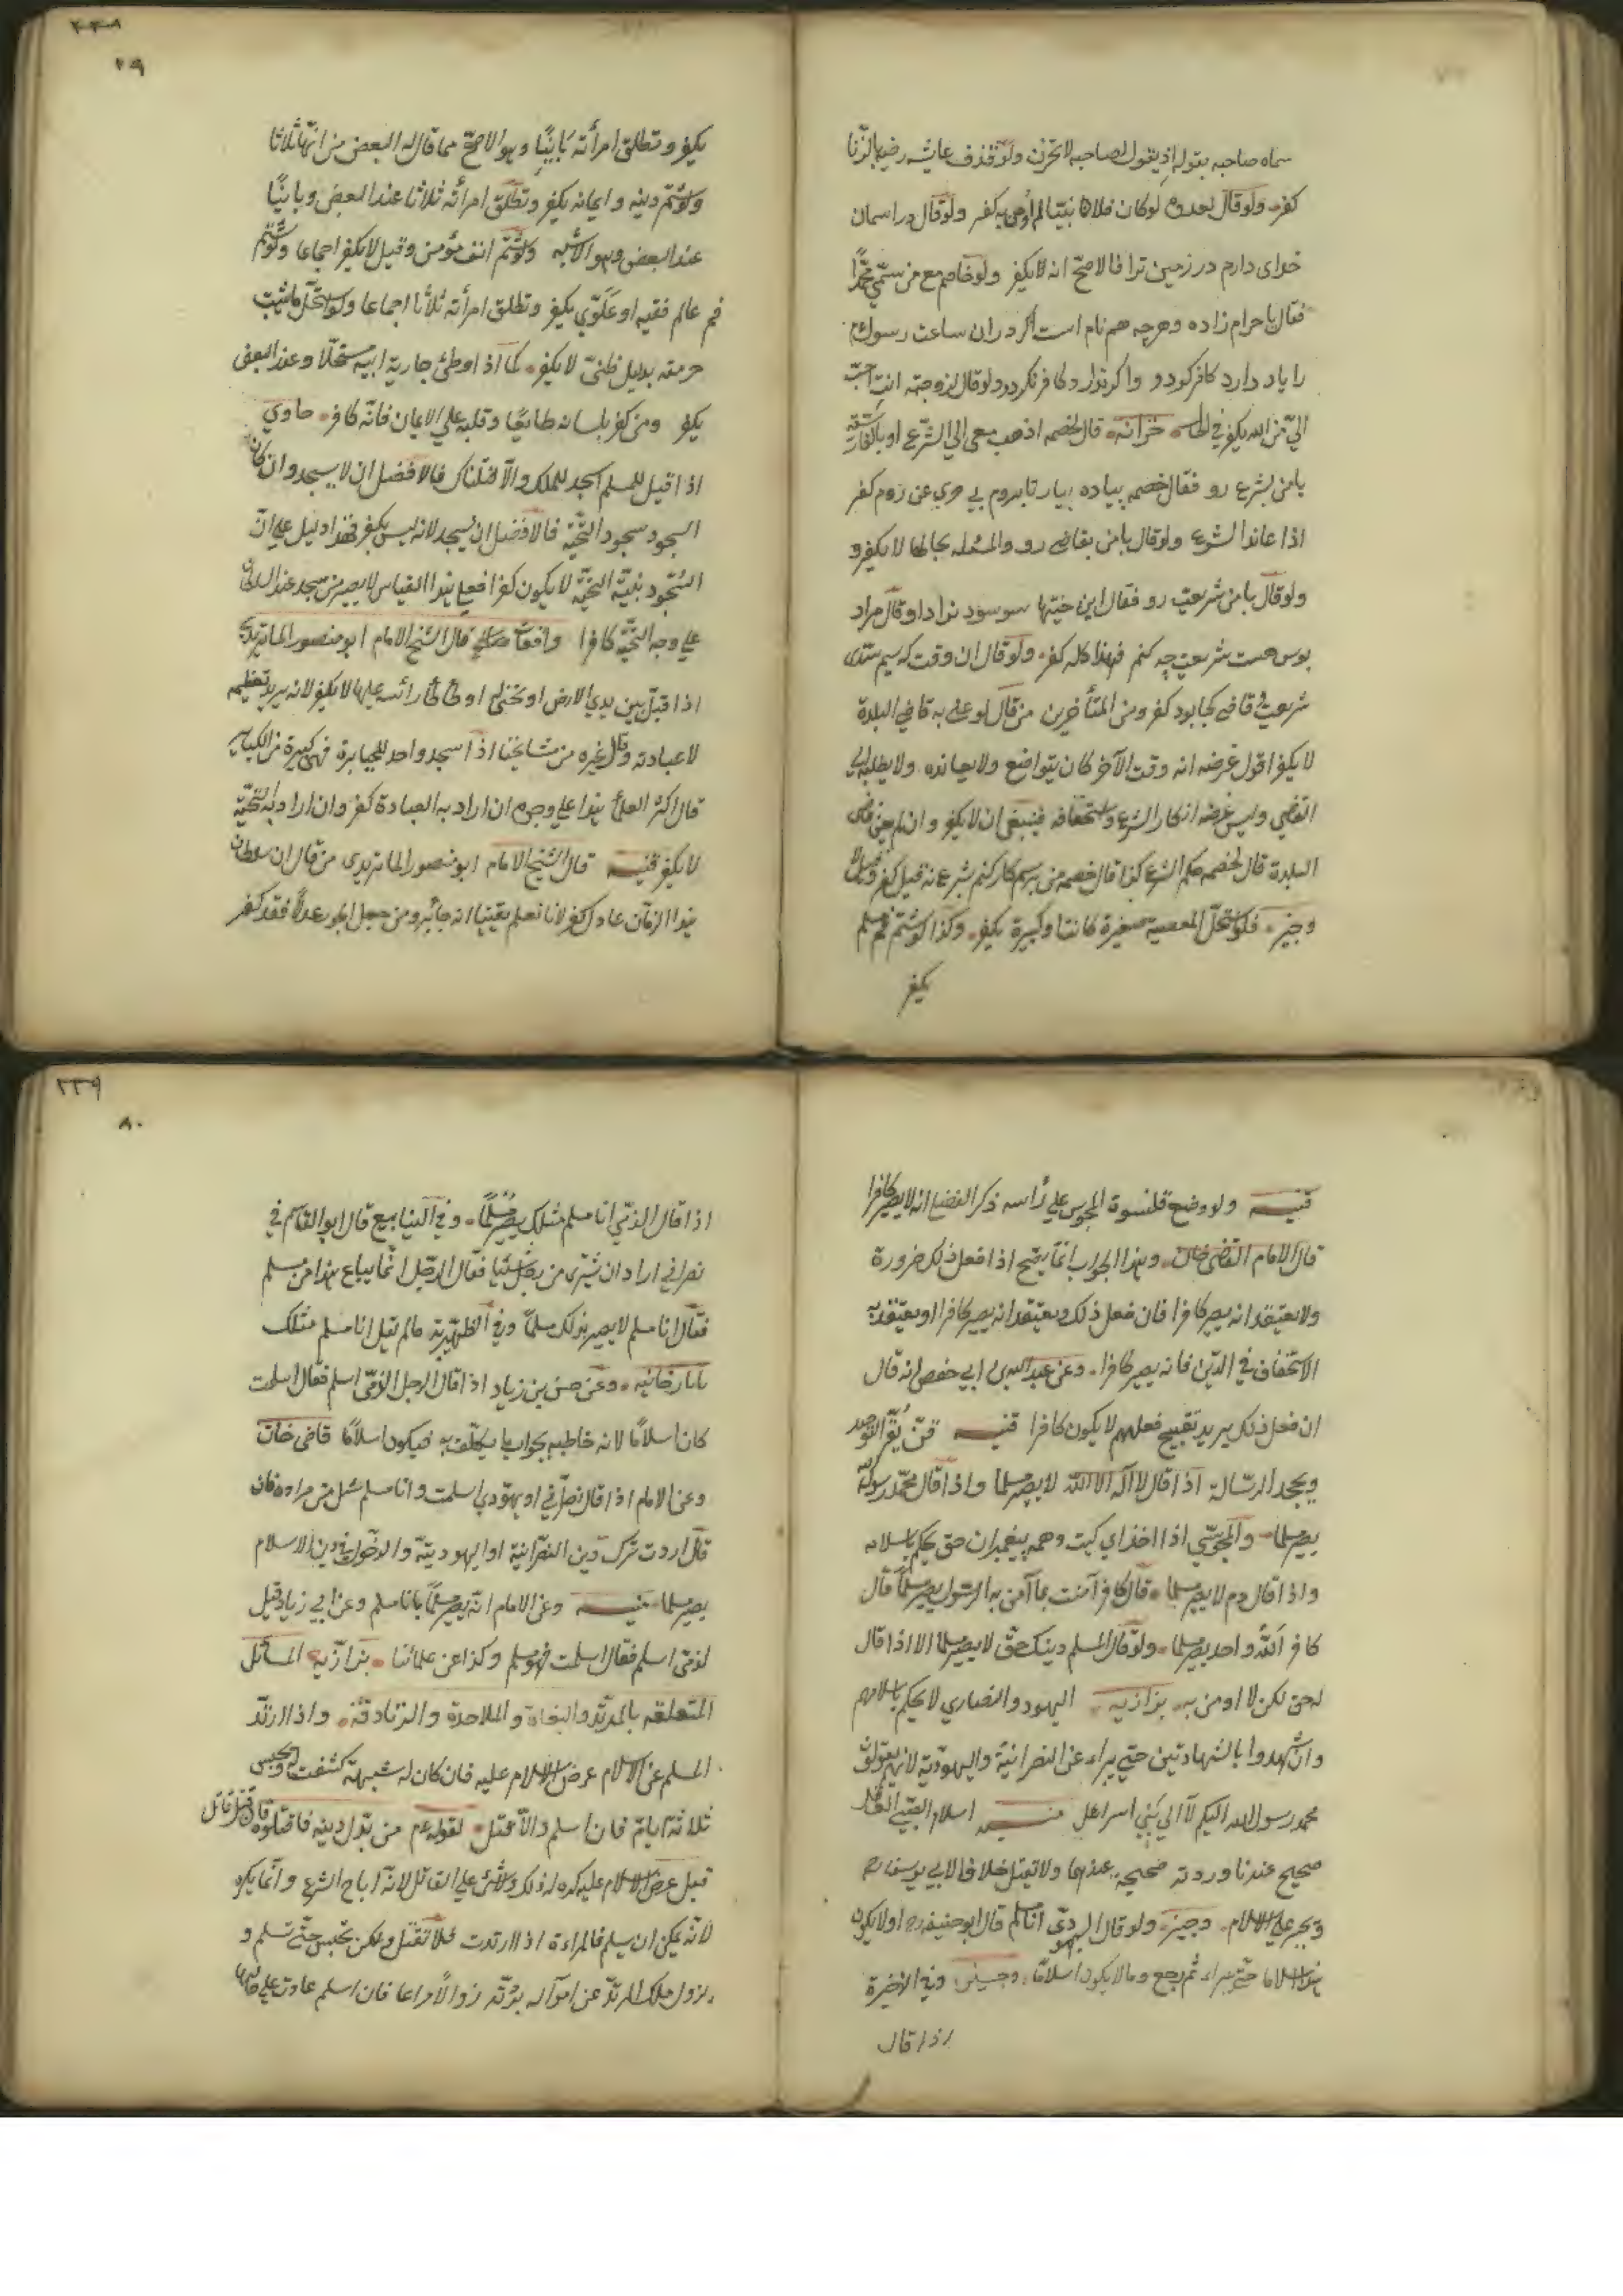 سماه صاحبه بقوله اذ يقول لصاحبه لا تحزن ولو قذف عايشه رضيها بالزنا
كفر ولو قال لعدوه لو كان فلانا نبيا لم اومن به كفر ولو قال در اسمان
خداى دارم در زمين ترا فالاصح انه لا يكفر ولو خاصم مع من سمي محمدا
فقال يا حرام زاده وهرچه هم نام است اگر در ان ساعت رسول
را ياد دارد كافر گردد واگر ندارد كافر نگردد ولو قال لزوجته انت احب
الي من الله يكفر في الحال خزانه قال لخصمه اذهب معى الي الشرع او بالفارسية
با من بشرع رو فقال خصمه پياده بيار تا بروم بي جبري نروم كفر
اذا عاند الشرع ولو قال با من بقاضي رو والمسئله بحالها لا يكفر و
ولو قال با من شريعت رو فقال اين حيتها سود ندارد او قال مراد
بوس هست شريعت چه كنم فهذا كله كفر ولو قال ان وقت كه سيم ستدى
شريعت وقاضي كجا بود كفر ومن المتأخرين من قال لو عني به قاضي البلدة
لا يكفر اقول غرضه انه وقت الآخر كان يتواضع ولا يعانده ولا يطلبه الي
القاضي وليس غرضه انكار الشرع واستخفافه فينبغي ان لا يكفر وان لم يعن قاضي
البلدة قال لخصمه حكم الشرع كذا قال خصمه من برسم كار كنم بشرع نه قيل كفر وقيل لا
وجيز فلو استحل المعصية صغيرة كانت او كبيرة يكفر وكذا لو شتم فم مسلم
يكفر
٢٣٨
٧٩
يكفر وتطلق امرأته بائنا وهو الاصح مما قاله البعض من انها ثلاثا
ولو شتم دينه وايمانه يكفر وتطلق امرأته ثلاثا عند البعض وبائنا
عند البعض وهو الاشبه ولو شتم انف مؤمن وقيل لا يكفر اجماعا ولو شتم
فم عالم فقيه او علوي يكفر وتطلق امرأته ثلاثا اجماعا ولو استحل ما ثبت
حرمته بدليل ظني لا يكفر كما اذا وطئ جارية ابيه مستحلا وعند البعض
يكفر ومن كفر بلسانه طايعا وقلبه علي الايمان فانه كافر حاوي
اذا قيل للمسلم اسجد للملك والا قتلناك فالافضل ان لا يسجد وان كان
السجود سجود التحية فالافضل ان يسجد لانه ليس بكفر فهذا دليل علي ان
السجود بنية التحية لا يكون كفرا فعلي هذا القياس لا يصير من سجد عند السلطان
علي وجه التحية كافرا واقعات صدر قال الشيخ الامام ابو منصور الماتريدي
اذا قبل بين يدي الارض او نحني له او طأطأ رأسه عليها لا يكفر لانه يريد تعظيمه
لا عبادته وقال غيره من مشايخنا اذا سجد واحد للجبابرة فهي كبيرة من الكباير
قال اكثر العلماء هذا علي وجوه ان اراد به العبادة كفر وان اراد به التحية
لا يكفر قنيه قال الشيخ الامام ابو منصور الماتريدي من قال ان سلطان
هذا الزمان عادل كفر لانا نعلم يقينا انه جائر ومن جعل الجور عدلا فقد كفر
قنيه ولو وضع قلنسوة المجوس علي رأسه ذكر القضاع انه لا يصير كافرا
قال الامام القاضى خان وهذا الجواب انما يصح اذا فعل ذلك ضرورة
ولا يعتقد انه يصير كافرا فان فعل ذلك ويعتقد انه يصير كافرا او يعتقد به
الاستخفاف في الدين فانه يصير كافرا وعن عبد الله بن ابي حفص انه قال
ان فعل ذلك يريد تقبيح فعلهم لا يكون كافرا قنيه فمن يقر التوحيد
ويجحد الرسالة اذا قال لا اله الا الله لا يصير مسلما واذا قال محمد رسول الله
يصير مسلما والمجوسي اذا خداي كيت وهمه پيغمبران حق يحكم باسلامه
واذا قال دم لا يصير مسلما قال كافر آمنت بما آمن به الرسول يصير مسلما قال
كافر الله واحد يصير مسلما ولو قال المسلم دينك حق لا يصير مسلما الا اذا قال
له حق لكن لا اومن به بزازيه اليهود والنصاري لا يحكم باسلامهم
وان شهدوا بالشهادتين حتي يبراء عن النصرانية واليهودية لانهم يقولون
محمد رسول الله اليكم لا الي بني اسرائل منيه اسلام الصبي العاقل
صحيح عندنا وردته صحيحة عندهما ولا تقبل خلافا لابي يوسف رح
ويجبر علي الاسلام وجيز ولو قال اليهودى انا مسلم قال ابو حنيفه رح اولا يكون
هذا اسلاما حتي يبراء ثم رجع وقال لا يكون اسلاما وجيز وفي الذخيرة
اذا قال
٢٣٩
٨٠
اذا قال الذمي انا مسلم مثلك يصير مسلما وفي الينابيع قال ابو القاسم في
نصراني اراد ان يشترى من رجل شيئا فقال الرجل انما يباع هذا من مسلم
فقال انا مسلم لا يصير بذلك مسلما وفي الظهيرية ما لم يقل انا مسلم مثلك
تاتارخانيه وعن حسن بن زياد اذا قال الرجل الذمي اسلم فقال اسلمت
كان اسلاما لانه خاطبه بجواب ما يكلف به فيكون اسلاما قاضى خان
وعن الامام اذا قال نصراني او يهودي اسلمت وانا مسلم سئل عن مراده فان
قال اردت ترك دين النصرانية او اليهودية والدخول في دين الاسلام
يصير مسلما منيه وعن الامام انه يصير مسلما بانا مسلم وعن ابي زياد قيل
لذمي اسلم فقال اسلمت فهو مسلم وكذا عن علمائنا بزازيه المسائل
المتعلقه بالمرتد والبغاة والملاحدة والزنادقه واذا ارتد
المسلم عن الاسلام عرض الاسلام عليه فان كان له شبهة كشفت ويحبس
ثلاثة ايام فان اسلم والا قتل لقوله عم من بدل دينه فاقتلوه فان قتل قاتل
قبل عرض الاسلام عليه كره له ذلك ولا شئ علي القاتل لانه اباح الشرع وانما يكره
لانه يمكن ان يسلم فالمراءة اذا ارتدت فلا تقتل ولكن تحبس حتي تسلم و
يزول ملك المرتد عن امواله بردته زوالا مراعا فان اسلم عادت علي حالها